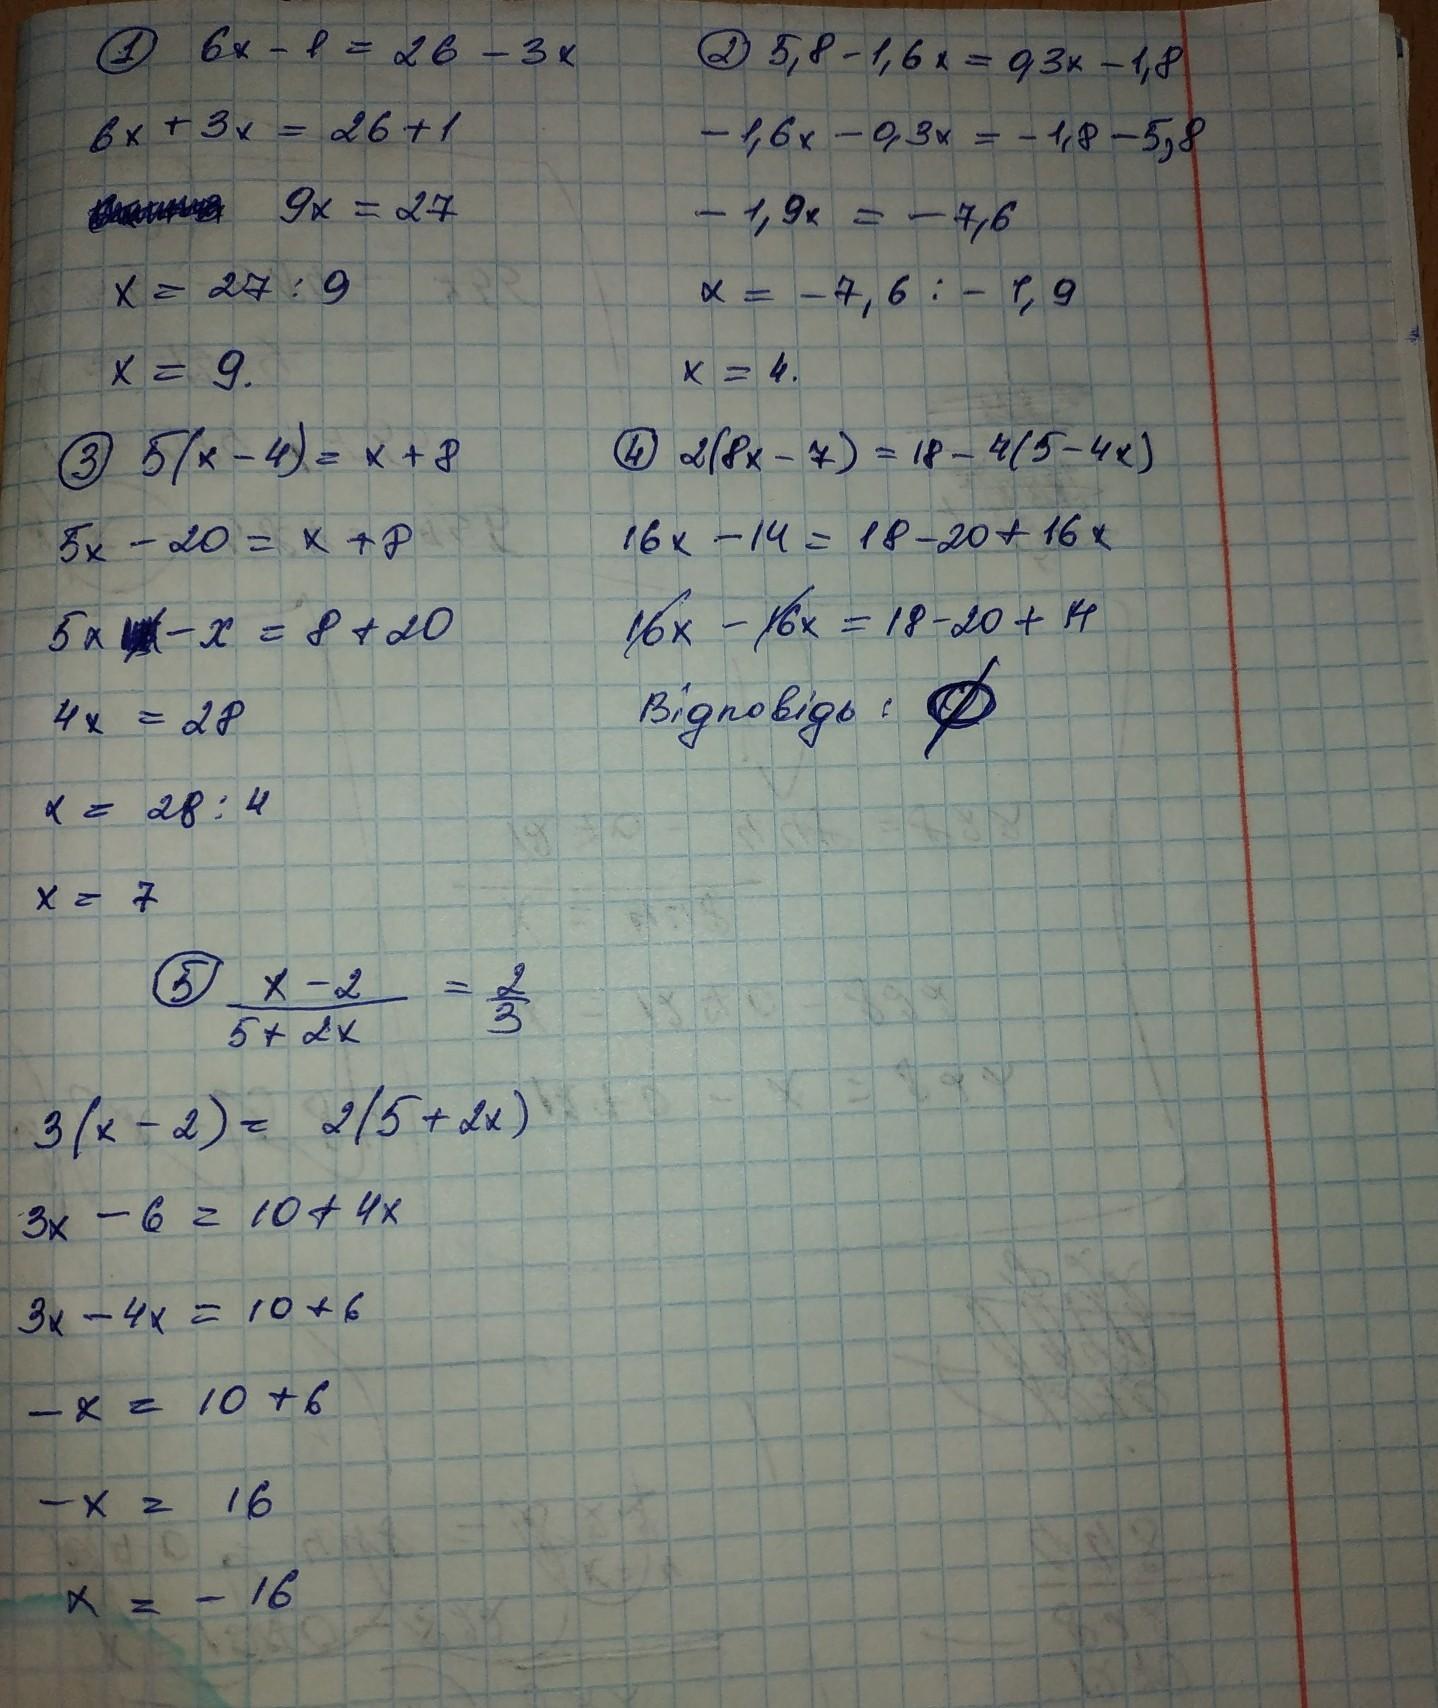 ① 6x - 1 = 26 - 3x
6x + 3x = 26 + 1
9x = 27
x = 27 : 9
x = 9.
② 5,8 - 1,6x = 0,3x - 1,8
- 1,6x - 0,3x = - 1,8 - 5,8
- 1,9x = - 7,6
x = - 7,6 : - 1,9
x = 4.
③ 5(x - 4) = x + 8
5x - 20 = x + 8
5x - x = 8 + 20
4x = 28
x = 28 : 4
x = 7
④ 2(8x - 7) = 18 - 4(5 - 4x)
16x - 14 = 18 - 20 + 16x
16x - 16x = 18 - 20 + 14
Відповідь : ∅
⑤ x - 2 / 5 + 2x = 2/3
3(x - 2) = 2(5 + 2x)
3x - 6 = 10 + 4x
3x - 4x = 10 + 6
- x = 10 + 6
- x = 16
x = - 16